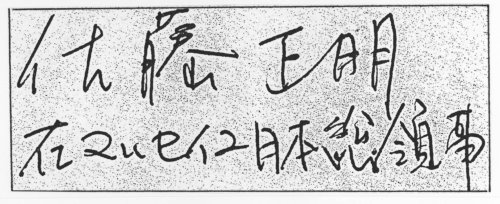 佐藤 正明
在マルセイユ日本総領事